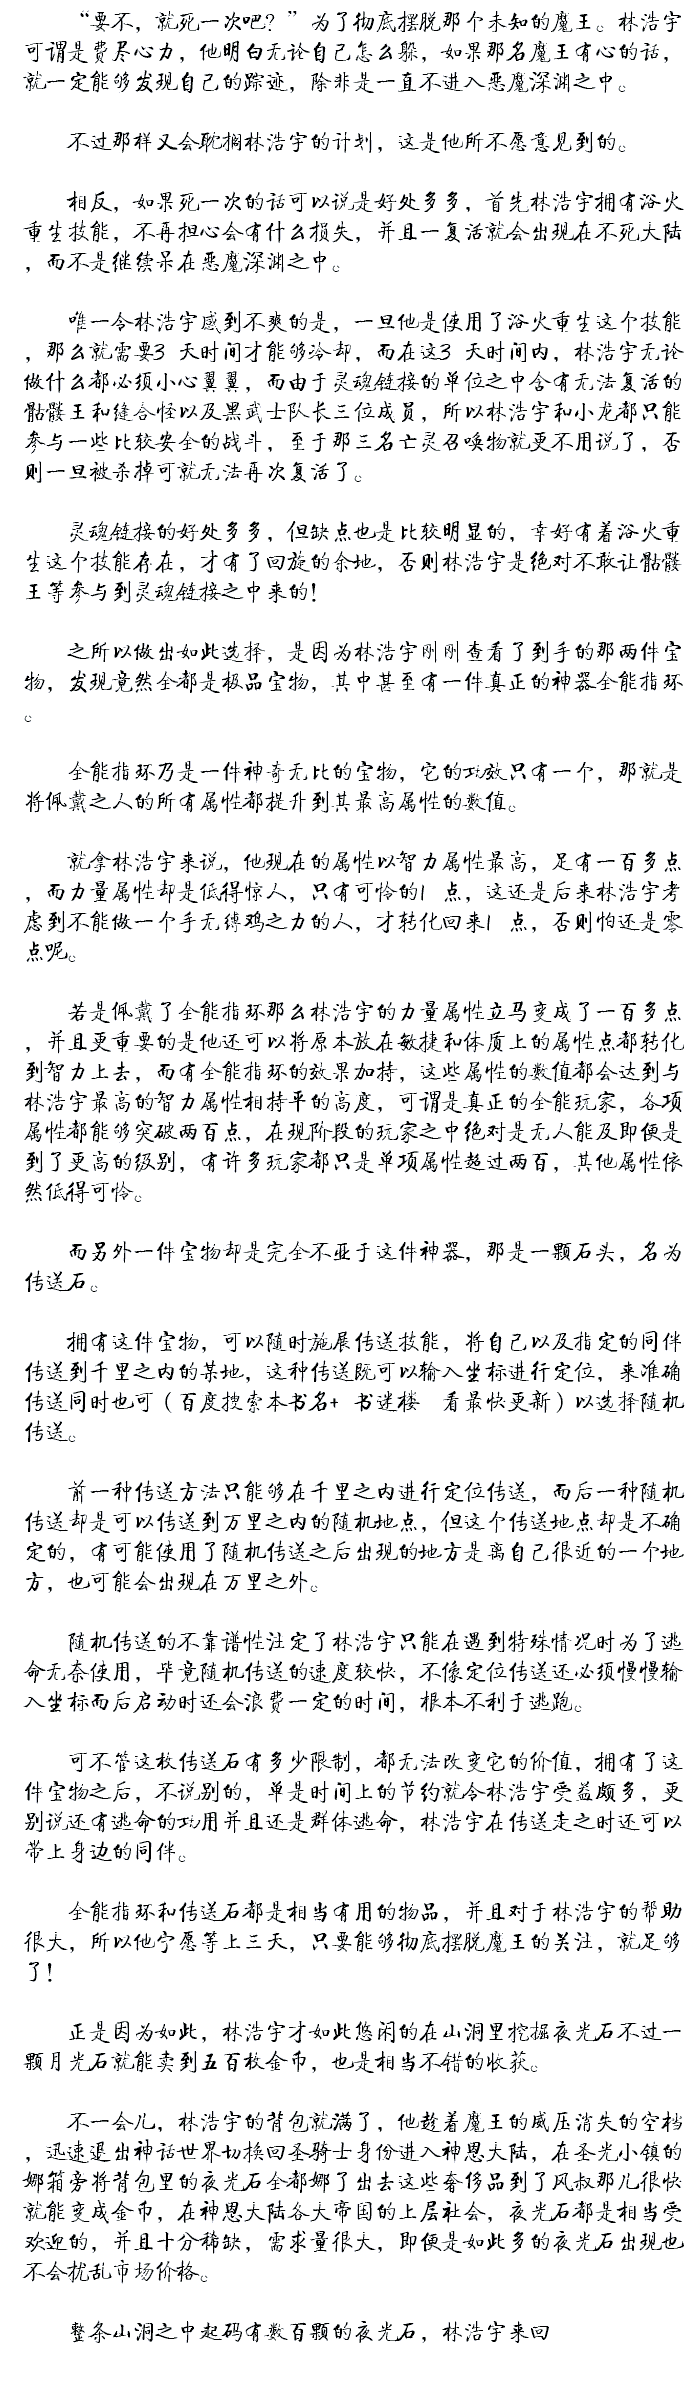 “要不，就死一次吧？”为了彻底摆脱那个未知的魔王。林浩宇
可谓是费尽心力，他明白无论自己怎么躲，如果那名魔王有心的话，
就一定能够发现自己的踪迹，除非是一直不进入恶魔深渊之中。
不过那样又会耽搁林浩宇的计划，这是他所不愿意见到的。
相反，如果死一次的话可以说是好处多多，首先林浩宇拥有浴火
重生技能，不再担心会有什么损失，并且一复活就会出现在不死大陆
，而不是继续呆在恶魔深渊之中。
唯一令林浩宇感到不爽的是，一旦他是使用了浴火重生这个技能
，那么就需要3 天时间才能够冷却，而在这3 天时间内，林浩宇无论
做什么都必须小心翼翼，而由于灵魂链接的单位之中含有无法复活的
骷髅王和缝合怪以及黑武士队长三位成员，所以林浩宇和小龙都只能
参与一些比较安全的战斗，至于那三名亡灵召唤物就更不用说了，否
则一旦被杀掉可就无法再次复活了。
灵魂链接的好处多多，但缺点也是比较明显的，幸好有着浴火重
生这个技能存在，才有了回旋的余地，否则林浩宇是绝对不敢让骷髅
王等参与到灵魂链接之中来的！
之所以做出如此选择，是因为林浩宇刚刚查看了到手的那两件宝
物，发现竟然全都是极品宝物，其中甚至有一件真正的神器全能指环
。
全能指环乃是一件神奇无比的宝物，它的功效只有一个，那就是
将佩戴之人的所有属性都提升到其最高属性的数值。
就拿林浩宇来说，他现在的属性以智力属性最高，足有一百多点
，而力量属性却是低得惊人，只有可怜的1 点，这还是后来林浩宇考
虑到不能做一个手无缚鸡之力的人，才转化回来1 点，否则怕还是零
点呢。
若是佩戴了全能指环那么林浩宇的力量属性立马变成了一百多点
，并且更重要的是他还可以将原本放在敏捷和体质上的属性点都转化
到智力上去，而有全能指环的效果加持，这些属性的数值都会达到与
林浩宇最高的智力属性相持平的高度，可谓是真正的全能玩家，各项
属性都能够突破两百点，在现阶段的玩家之中绝对是无人能及即便是
到了更高的级别，有许多玩家都只是单项属性超过两百，其他属性依
然低得可怜。
而另外一件宝物却是完全不亚于这件神器，那是一颗石头，名为
传送石。
拥有这件宝物，可以随时施展传送技能，将自己以及指定的同伴
传送到千里之内的某地，这种传送既可以输入坐标进行定位，来准确
传送同时也可（百度搜索本书名+ 书迷楼 看最快更新）以选择随机
传送。
前一种传送方法只能够在千里之内进行定位传送，而后一种随机
传送却是可以传送到万里之内的随机地点，但这个传送地点却是不确
定的，有可能使用了随机传送之后出现的地方是离自己很近的一个地
方，也可能会出现在万里之外。
随机传送的不靠谱性注定了林浩宇只能在遇到特殊情况时为了逃
命无奈使用，毕竟随机传送的速度较快，不像定位传送还必须慢慢输
入坐标而后启动时还会浪费一定的时间，根本不利于逃跑。
可不管这枚传送石有多少限制，都无法改变它的价值，拥有了这
件宝物之后，不说别的，单是时间上的节约就令林浩宇受益颇多，更
别说还有逃命的功用并且还是群体逃命，林浩宇在传送走之时还可以
带上身边的同伴。
全能指环和传送石都是相当有用的物品，并且对于林浩宇的帮助
很大，所以他宁愿等上三天，只要能够彻底摆脱魔王的关注，就足够
了！
正是因为如此，林浩宇才如此悠闲的在山洞里挖掘夜光石不过一
颗月光石就能卖到五百枚金币，也是相当不错的收获。
不一会儿，林浩宇的背包就满了，他趁着魔王的威压消失的空档
，迅速退出神话世界切换回圣骑士身份进入神恩大陆，在圣光小镇的
娜箱旁将背包里的夜光石全都娜了出去这些奢侈品到了风叔那儿很快
就能变成金币，在神恩大陆各大帝国的上层社会，夜光石都是相当受
欢迎的，并且十分稀缺，需求量很大，即便是如此多的夜光石出现也
不会扰乱市场价格。
整条山洞之中起码有数百颗的夜光石，林浩宇来回